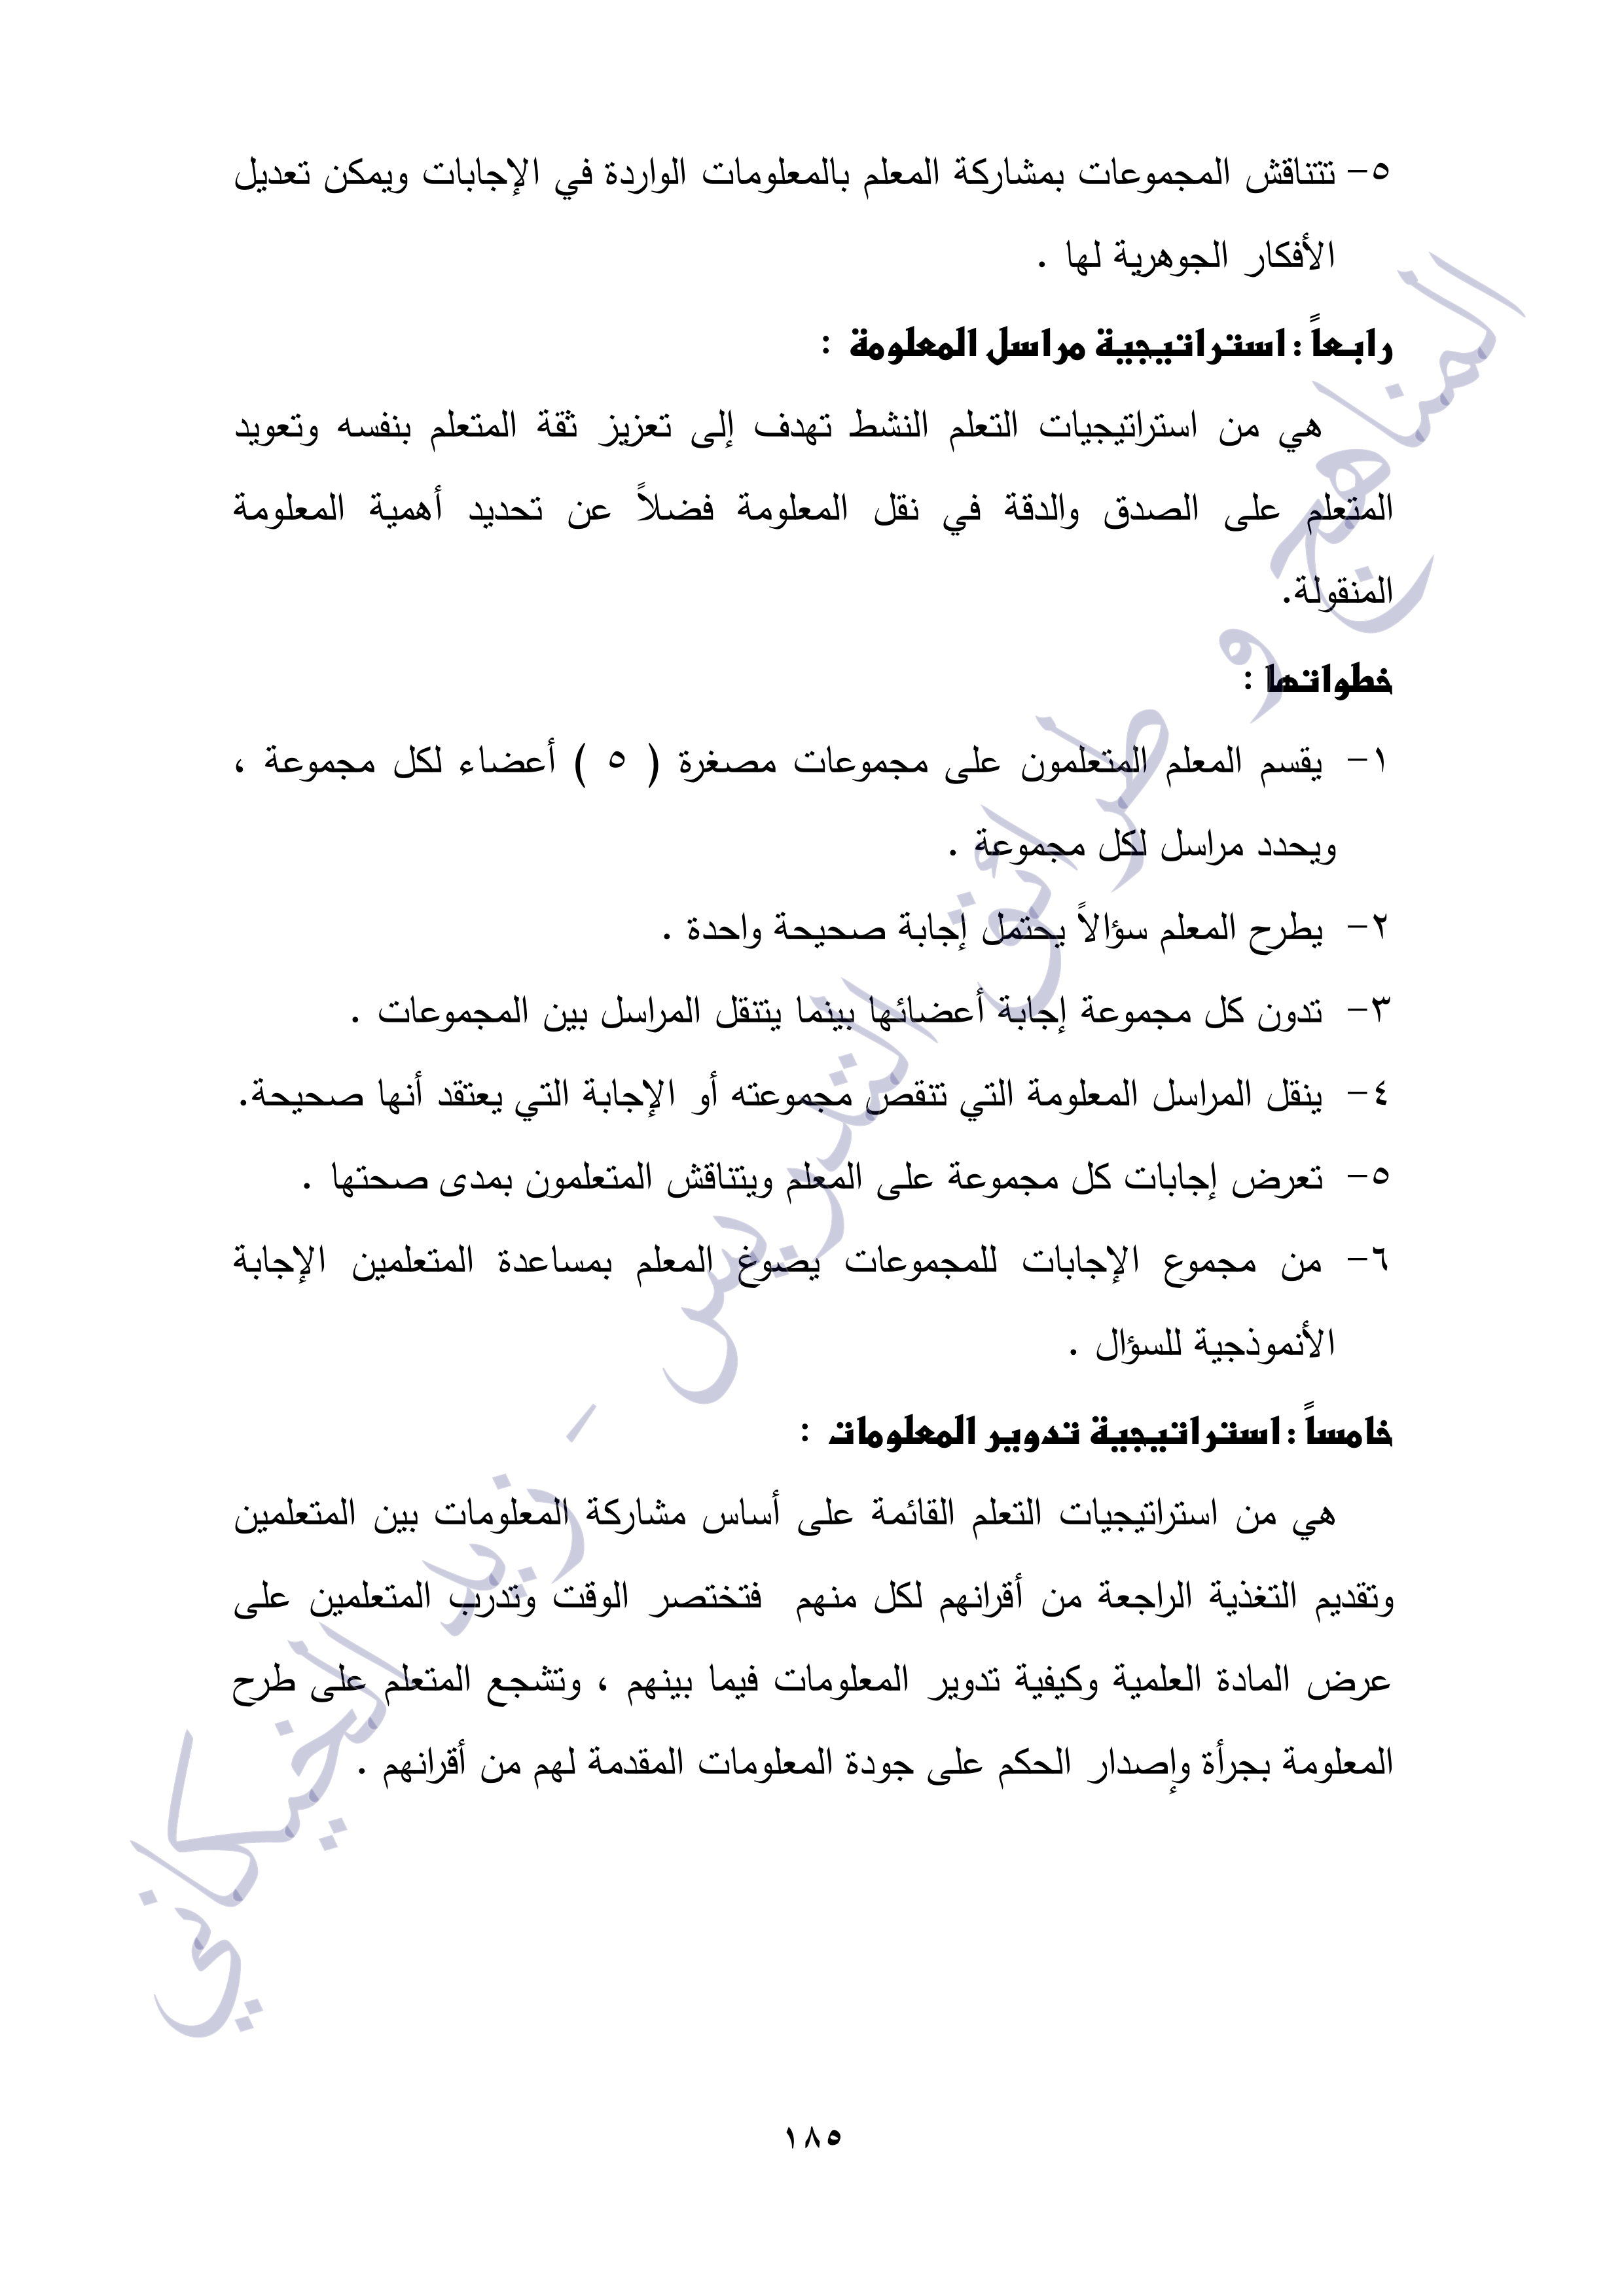 ٥- تتناقش المجموعات بمشاركة المعلم بالمعلومات الواردة في الإجابات ويمكن تعديل
الأفكار الجوهرية لها .
رابعاً : استراتيجية مراسل المعلومة :
هي من استراتيجيات التعلم النشط تهدف إلى تعزيز ثقة المتعلم بنفسه وتعويد
المتعلم على الصدق والدقة في نقل المعلومة فضلاً عن تحديد أهمية المعلومة
المنقولة.
خطواتها :
١- يقسم المعلم المتعلمون على مجموعات مصغرة ( ٥ ) أعضاء لكل مجموعة ،
ويحدد مراسل لكل مجموعة .
٢- يطرح المعلم سؤالاً يحتمل إجابة صحيحة واحدة .
٣- تدون كل مجموعة إجابة أعضائها بينما يتنقل المراسل بين المجموعات .
٤- ينقل المراسل المعلومة التي تنقص مجموعته أو الإجابة التي يعتقد أنها صحيحة.
٥- تعرض إجابات كل مجموعة على المعلم ويتناقش المتعلمون بمدى صحتها .
٦- من مجموع الإجابات للمجموعات يصوغ المعلم بمساعدة المتعلمين الإجابة
الأنموذجية للسؤال .
خامساً : استراتيجية تدوير المعلومات :
هي من استراتيجيات التعلم القائمة على أساس مشاركة المعلومات بين المتعلمين
وتقديم التغذية الراجعة من أقرانهم لكل منهم فتختصر الوقت وتدرب المتعلمين على
عرض المادة العلمية وكيفية تدوير المعلومات فيما بينهم ، وتشجع المتعلم على طرح
المعلومة بجرأة وإصدار الحكم على جودة المعلومات المقدمة لهم من أقرانهم .
المناهج و طرائق التدريس - زيد الخيكاني
١٨٥